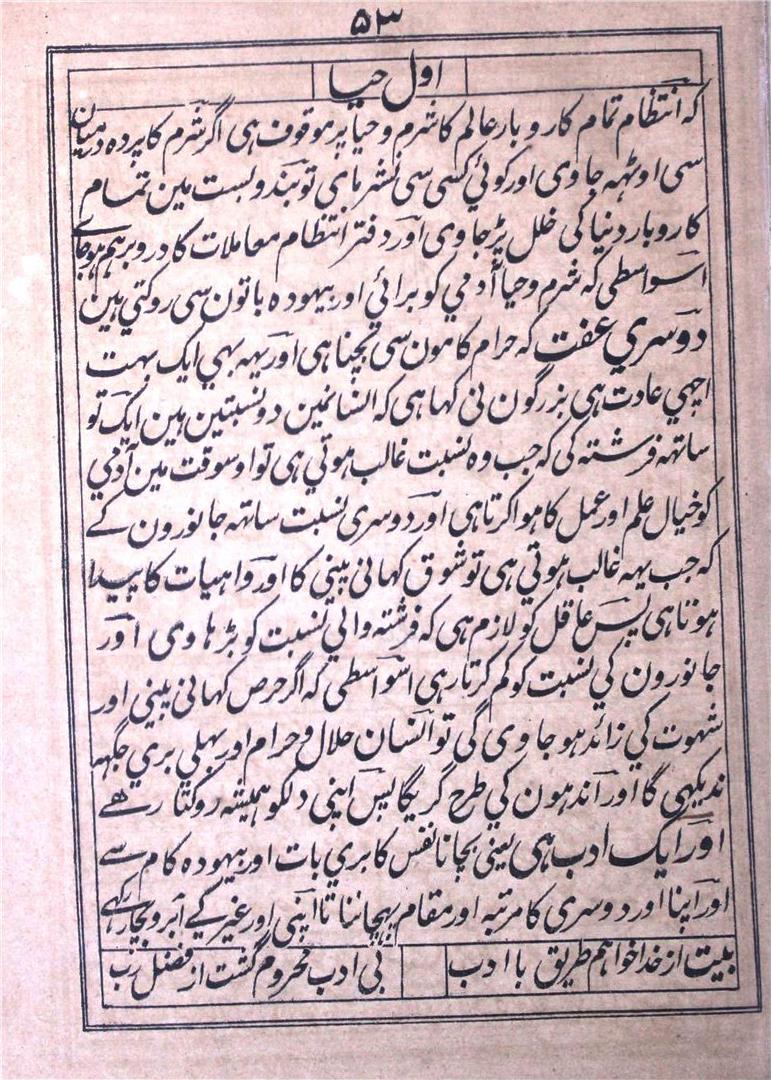 ۵۳
اول حیا
کہ انتظام تمام کاروبار عالم کا شرم و حیا پر موقوف ہی اگر شرم کا پردہ درمیان
سی اوٹہہ جاوی اور کوئی کسی سی نشرماي تو بندوبست مین تمام
کاروبار دنیا کی خلل پڑجاوی اور دفتر انتظام معاملات کا دروبرہم ہوجاے
اسواسطی کہ شرم وحیا آدمي کو برائي اور بیہودہ باتون سی روکتي ہین
دوسري عفت کہ حرام کامون سی بچنا ہی اور یہہ بہي ایک بہت
اچہي عادت ہی بزرگون نی کہا ہی کہ انسانمین دو نسبتین ہین ایک تو
ساتہہ فرشتہ کی کہ جب وہ نسبت غالب ہوتي ہی تو اوسوقت مین آدمي
کو خیال علم اور عمل کا ہوا کرتا ہی اور دوسری نسبت ساتہہ جانورون کے
کہ جب یہہ غالب ہوتي ہی تو شوق کہانی پینی کا اور واہیات کا پیدا
ہوتا ہی پس عاقل کو لازم ہی کہ فرشتہ والي نسبت کو بڑہاوی اور
جانورون کي نسبت کو کم کرتا رہی اسواسطی کہ اگر حرص کہانی پینی اور
شہوت کي زائد ہوجاوی گی تو انسان حلال و حرام اور بہلي بري جگہہ
ندیکہی گا اور اندہون کي طرح گریگا پس اپنی دلکو ہمیشہ روکتا رہے
اور ایک ادب ہی یعنی بچانا نفس کا بري بات اور بیہودہ کام سے
اور اپنا اور دوسری کا مرتبہ اور مقام پہچاننا تا اپنی اور غیر کے آبرو بچا رکہی
بیت از خدا خواہم طریق با ادب بی ادب محروم گشت از فضل رب